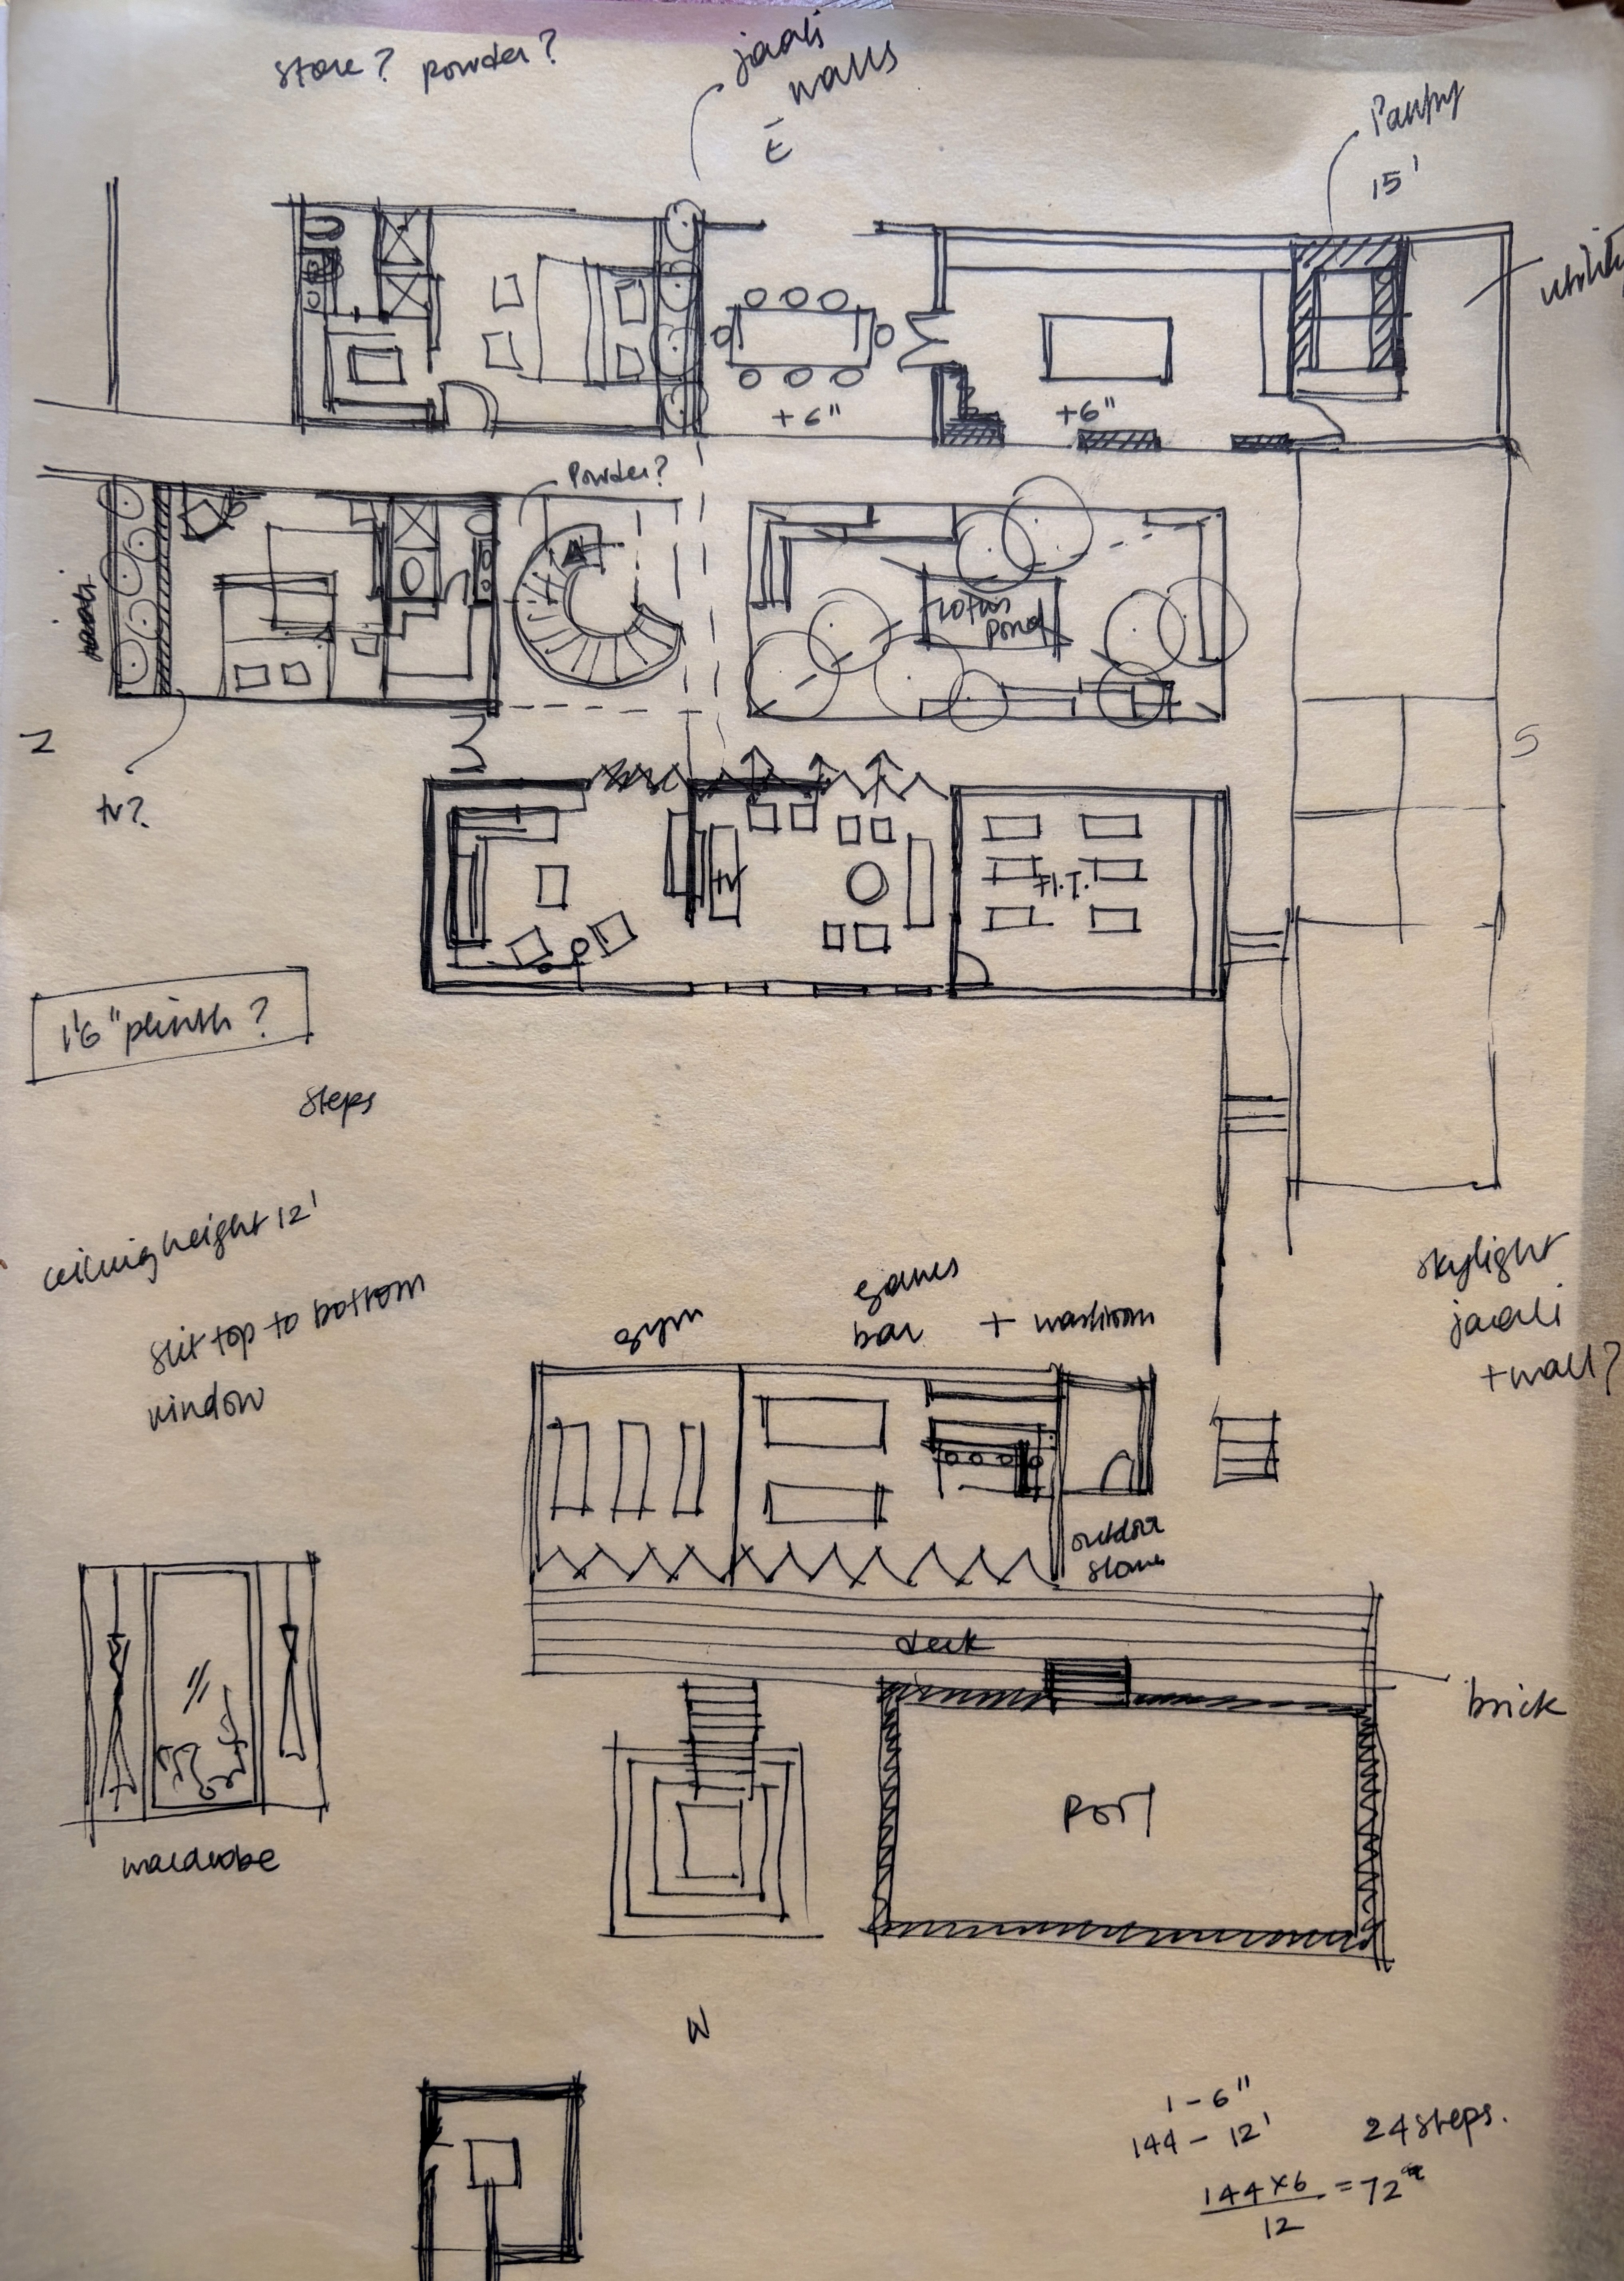 store? powder?
jaali
walls
E
Pantry
15'
utility
+6"
+6"
Powder?
Lotus
Pond
jaali
N
S
tv?
TV
H.T.
1'6" plinth?
steps
ceiling height 12'
slit top to bottom
window
gym
games
bar + washroom
skylight
jaali
+wall?
outdoor
store
deck
brick
wardrobe
W
1 - 6"
144 - 12'
24 steps.
144 x 6 = 72"
12